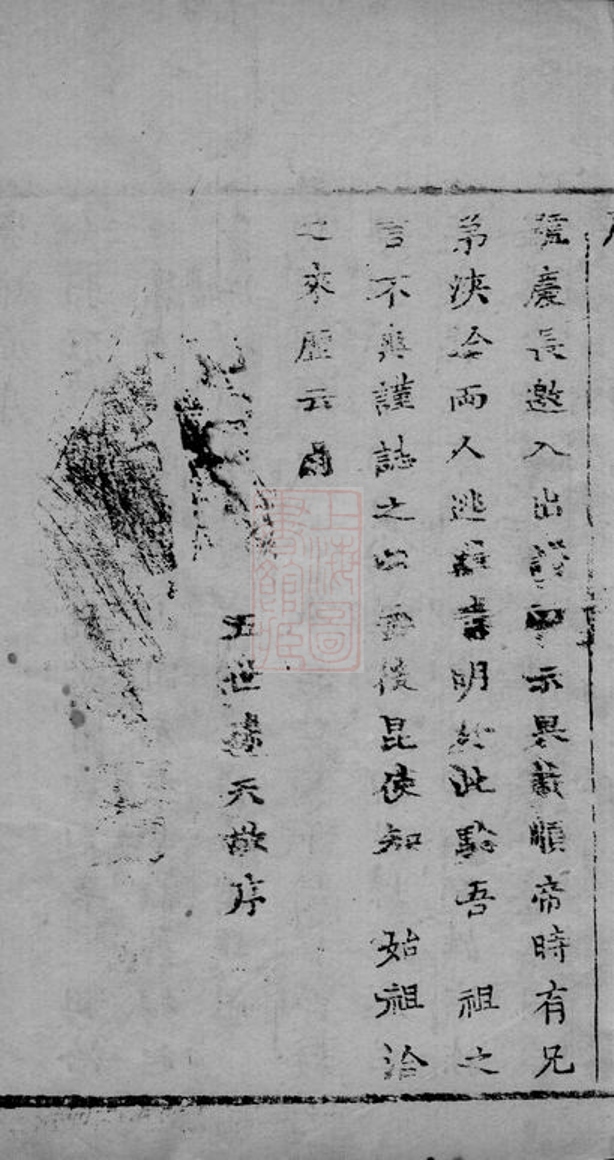 慶長邀入出譜而示果載順帝時有兄
弟浹洽兩人逃難書明於此驗吾 祖之
言不爽謹誌之以垂後昆使知 始祖洽
之來歷云爾
五世孫天敘序
上海圖書館藏